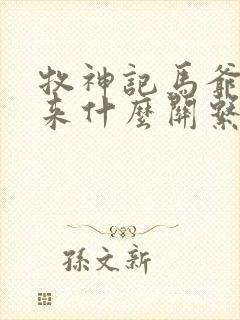 牧神記馬爺
来什麼關繫
孫文新